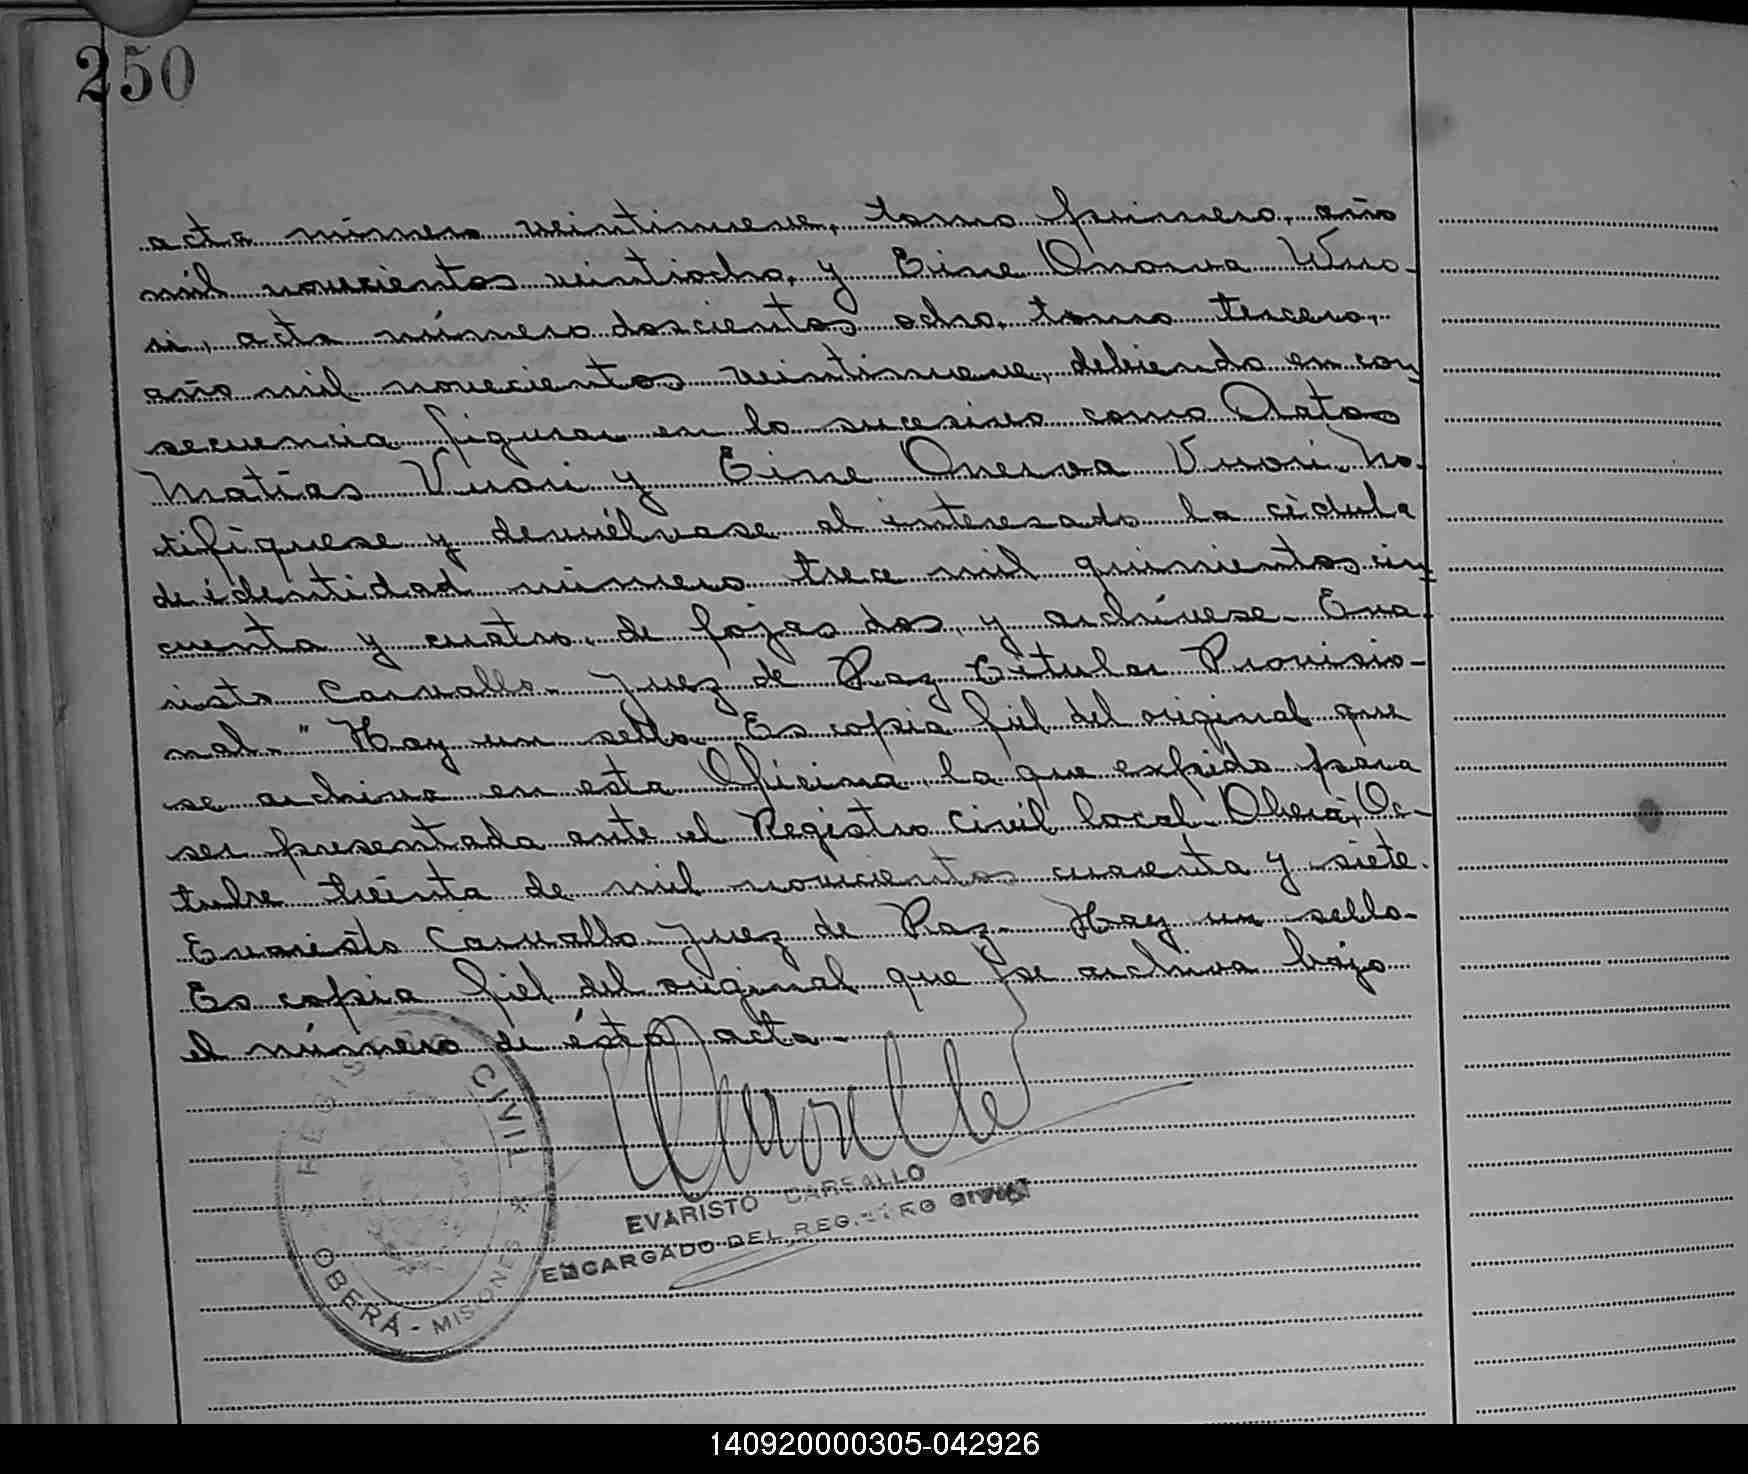 250
acta número veintinueve, tomo primero, año
mil novecientos veintiocho, y Eine Onowa Wuo-
ri, acta número doscientos ocho, tomo tercero,
año mil novecientos veintinueve, debiendo en con
secuencia figurar en lo sucesivo como Artos
Matías Vuori y Eine Onerva Vuori. No-
tifíquese y devuélvase al interesado la cédula
de identidad número trece mil quinientos cin
cuenta y cuatro, de fojas dos, y archívese. Eva-
risto Carvallo. Juez de Paz Titular Provisio-
nal." Hay un sello. Es copia fiel del original que
se archiva en esta Oficina, la que expido para
ser presentada ante el Registro Civil local. Oberá, Oc-
tubre treinta de mil novecientos cuarenta y siete.
Evaristo Carvallo. Juez de Paz. Hay un sello.
Es copia fiel del original que se archiva bajo
el número de ésta acta.-
REGISTRO CIVIL
OBERÁ - MISIONES
EVARISTO CARVALLO
ENCARGADO DEL REGISTRO CIVIL
140920000305-042926